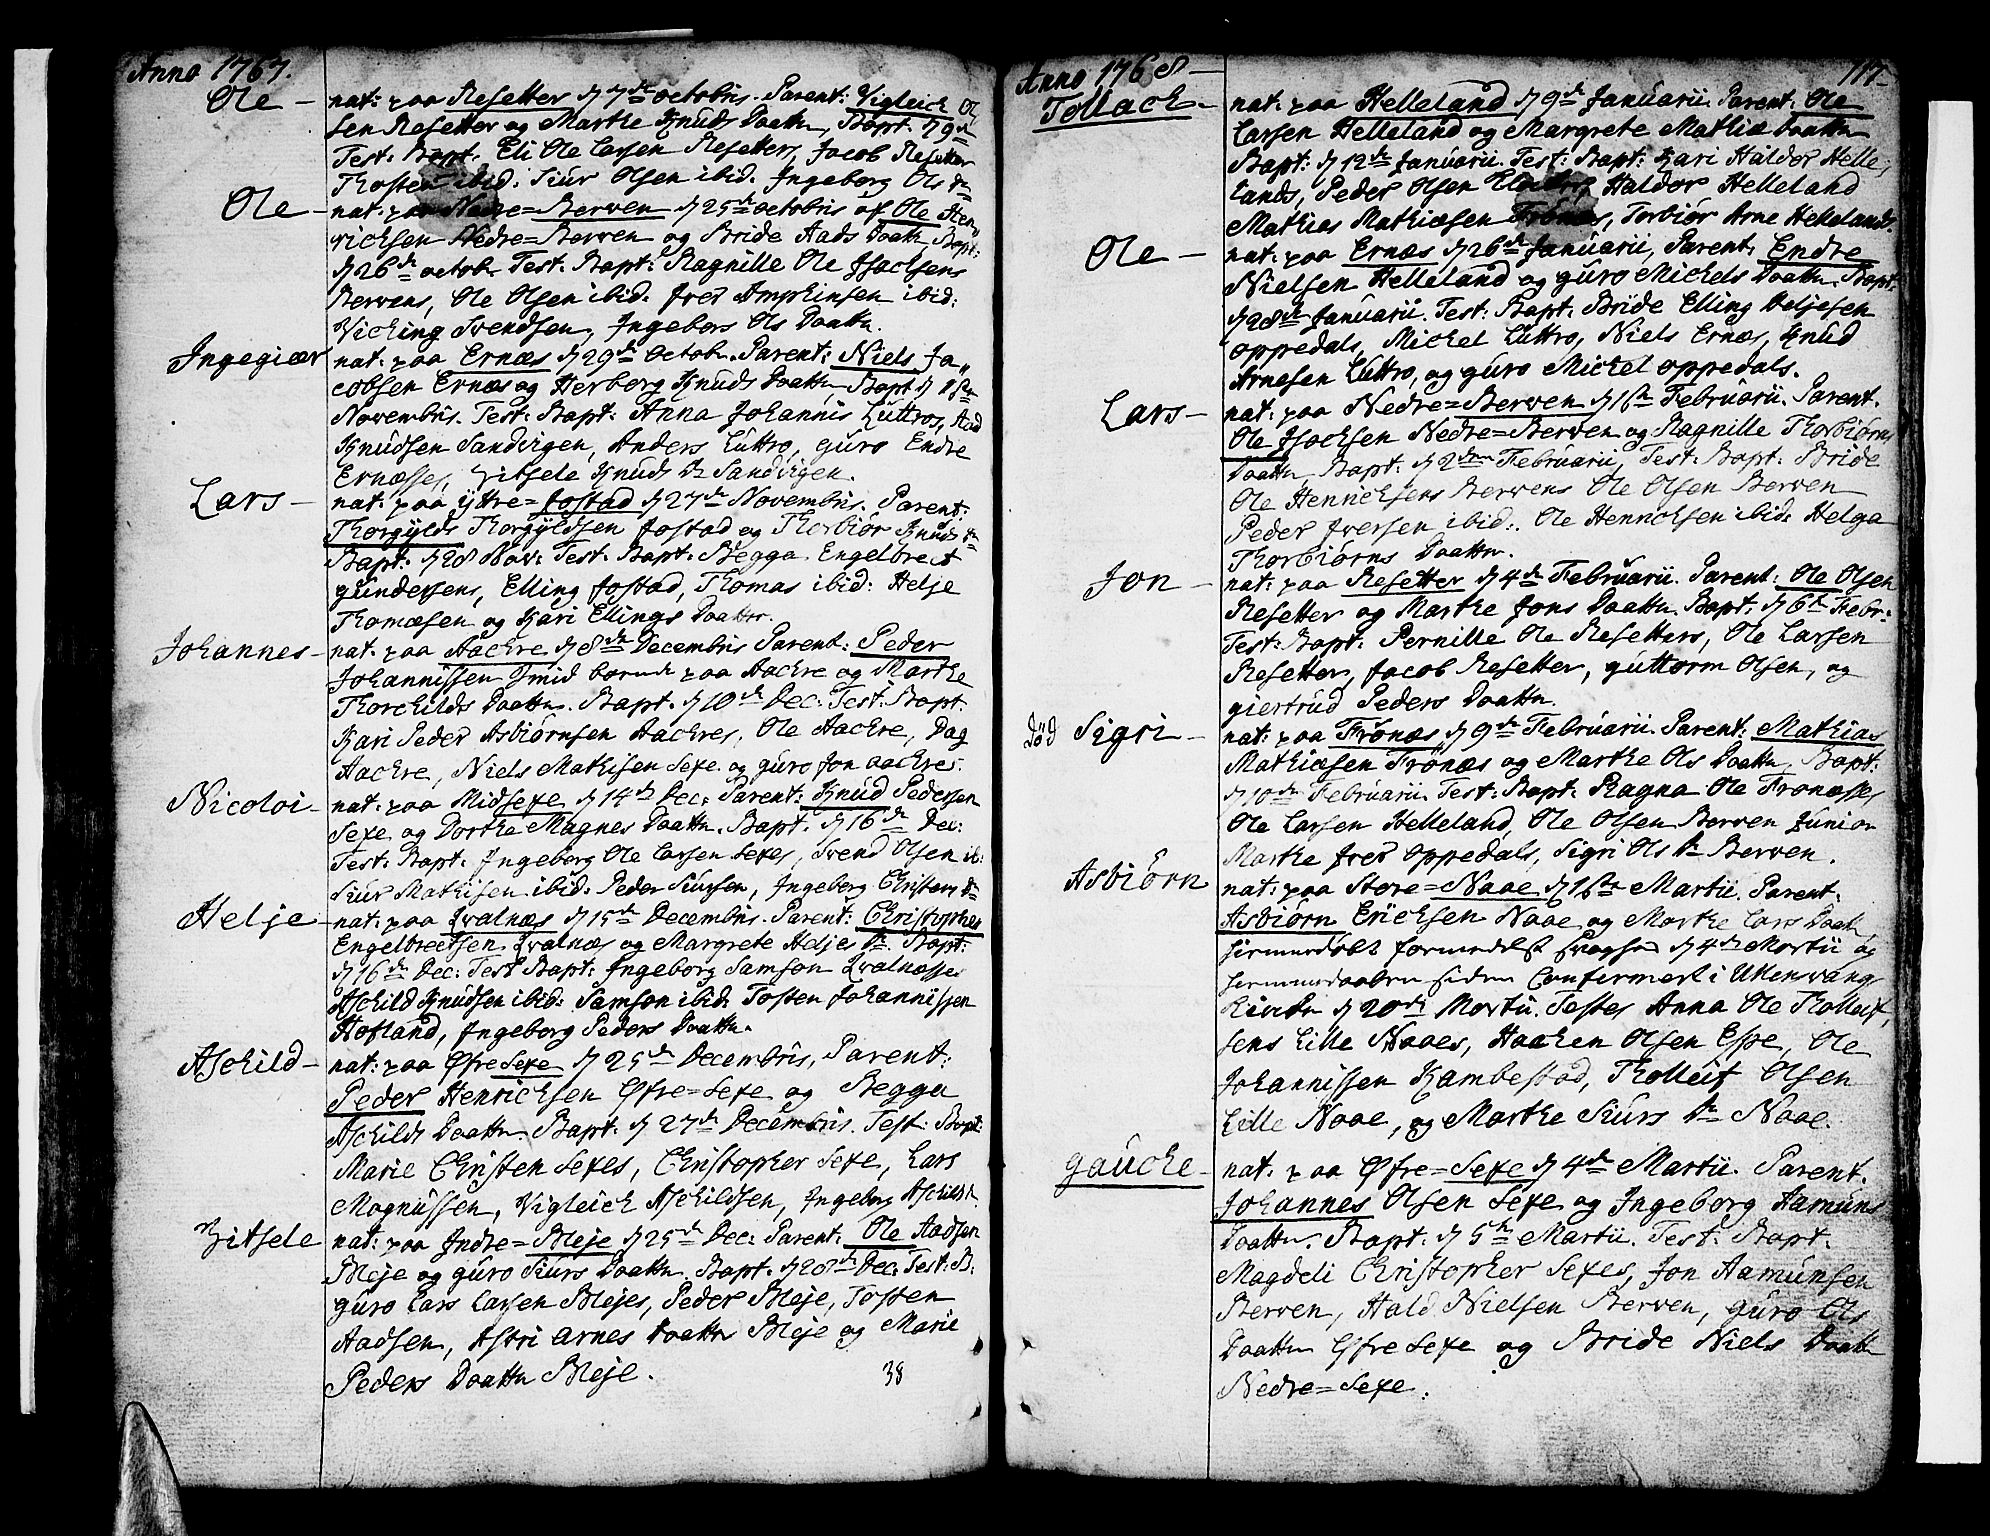 Anno 1767.
Ole — nat: paa Resetter d 7de octobris. Parent: Vigleich Ol,
sen Resetter og Marthe Knuds Daatter, Bapt. d 9de
Test: Bapt. Eli Ole Larsen Resetters, Jacob Resetter
Thosten ibid: Siur Olsen ibid. Ingeborg Ols dr
Ole — nat: paa Nedre=Berven d 25de octobris af Ole Hen
richsen Nedre=Berven og Bride Aads Daatter, Bapt:
d 26de octob. Test: Bapt: Ragnille Ole Jsachsens
Bervens, Ole Olsen ibid. Iver Amphinsen ibid:
Viching Svendsen, Ingebors Ols Daatter.
Ingegiær nat: paa Ernæs d 29de Octobr. Parent: Niels Ja„
cobsen Ernæs og Herborg Knuds Daatter, Bapt d 1ste
Novembris. Test: Bapt: Anna Johannis Luttros, Aad
Knudsen Sandvigen, Anders Luttro, guro Endre
Ernæsses, Zitsele Knuds Dr Sandvigen.
Lars — nat: paa Yttre=Jostad d 27de Novembris. Parent:
Thorgylds Thorgyldsen Jostad og Thorbiör Knuds dr
Bapt: d 28 Nov: Test: Bapt: Begga Engelbrect
gundersens, Elling Jostad, Thomas ibid: Helje
Thomæsen og Kari Ellings Daatter.
Johannes — nat: paa Aachre d 8de Decembris Parent: Peder
Johannissen Smid boende paa Aachre og Marthe
Thorchilds Daatter. Bapt. d 10de Dec: Test: Bapt.
Kari Peder Asbiörnsen Aachres, Ole Aachre, Dag
Aachre, Niels Mathisen Sexe og guro Jon Aachres.
Nicolai — nat: paa Midsexe d 14de Dec: Parent: Knud Pedersen
Sexe og Dorthe Magnes Daatter. Bapt. d 16de Dec:
Test: Bapt. Ingeborg Ole Larsen Sexes, Svend Olsen ib:
Siur Mathisen ibid: Peder Siursen, Ingeborg Christens Dr
Helje — nat: paa Qvalnæs d 15de Decembris. Parent: Christopher
Engelbrectsen Qvalnæs og Margrete Heljes Dr Bapt:
d 16de Dec: Test Bapt: Ingeborg Samson Qvalnæsses
Aschild Knudsen ibid: Samson ibid: Tosten Johannissen
Hofland, Ingeborg Peders Daatter.
Aschild — nat: paa Øfre Sexe d 25de Decembris, Parent:
Peder Henrichsen Øfre=Sexe og Begga
Aschilds Daatter. Bapt: d 27de Decembris. Test: Bapt:
Marie Christen Sexes, Christopher Sexe, Lars
Magnussen, Vigleich Aschildsen, Ingeborg Aschilds dr
Zitsele nat: paa Indre=Bleje d 25de Dec: Parent: Ole Aadsen
Bleje og guro Siurs Daatter. Bapt. d 28de Dec: Test: B:
guro Lars Larsen Blejes, Peder Bleje, Tosten
Aadsen, Astri Arnes Daatter Bleje og Marie
Peders Daatter Bleje. 38
Anno 1768 — 117
Tollach — nat: paa Helleland d 9de Januarii. Parent: Ole
Larsen Helleland og Margrete Mathiæ Daatter
Bapt: d 12de Januarii. Test: Bapt: Kari Haldor Helle,
lands, Peder Olsen Haldor Helleland
Mathias Mathiæsen Frönæs, Torbiör Arne Hellelands.
Ole — nat: paa Ernæs d 26de Januarii, Parent. Endre
Nielsen Helleland og guro Michels Daatter Bapt:
d 28de Januarii. Test: Bapt: Bride Elling Heljesen
oppedals, Michel Luttro, Niels Ernæs, Knud
Arnesen Luttro, og guro Michel oppedals.
Lars — nat: paa Nedre=Berven d 1ste Februarii. Parent.
Ole Jsachsen Nedre=Berven og Ragnille Thorbiörns
Daatter, Bapt: d 2den Februarii, Test: Bapt: Bride
Ole Henrichsens Bervens Ole Olsen Berven
Peder Iversen ibid: Ole Henrichsen ibid: Helga
Thorbiörns Daatter.
Jon — nat: paa Resetter d 4de Februarii. Parent: Ole Olsen
Resetter og Marthe Jons Daatter. Bapt: d 6te Febr:
Test: Bapt: Pernille Ole Resetters, Ole Larsen
Resetter, Jacob Resetter, guttorm Olsen, og
giertrud Peders Daatter.
död Sigri — nat: paa Frönæs d 9de Februarii. Parent: Mathias
Mathiæsen Frönæs og Marthe Ols Daatter. Bapt:
d 10de Februarii. Test: Bapt: Ragna Ole Fronæsses
Ole Larsen Helleland, Ole Olsen Berven Junior
Marthe Iver oppedals, Sigri Ols Dr Berven.
Asbiörn nat: paa Store=Naae d 1ste Martii. Parent.
Asbiörn Erichsen Naae og Marthe Lars Daatter
hiemmedöbt formedelst svaghed d 4de Martii og
hiemmedaaben siden Confirmert i Ullenwangs
Kirche d 20de Martii. Testes Anna Ole Tholleif,
sens Lille Naaes, Haachen Olsen Espe, Ole
Johannissen Kambestad, Tholleif Olsen
Lille Naae, og Marthe Siurs Dr Naae.
gaúche — nat: paa Øfre=Sexe d 4de Martii. Parent.
Johannes Olsen Sexe og Ingeborg Aamuns
Daatter. Bapt: d 5te Martii. Test: Bapt.
Magdeli Christopher Sexes, Jon Aamunsen
Berven, Hald Nielsen Berven, guro Ols
Daatter Øfre Sexe og Bride Niels Daatter
Nedre=Sexe.